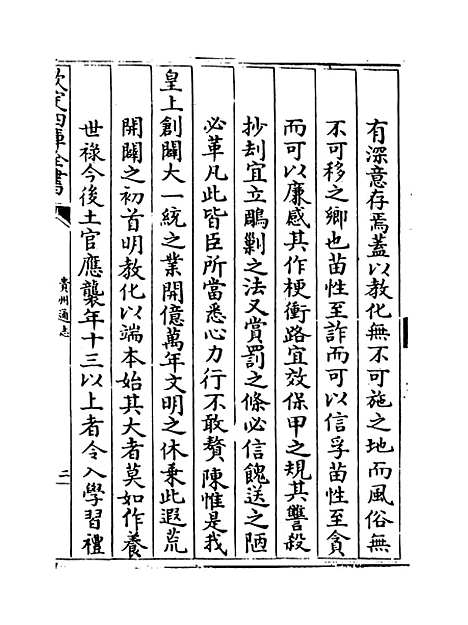 有深意存焉蓋以教化無不可施之地而風俗無
不可移之鄉也苗性至詐而可以信孚苗性至貪
而可以廉感其作梗衝路宜效保甲之規其讐殺
抄刦宜立鵰剿之法又賞罰之條必信餽送之陋
必革凡此皆臣所當悉心力行不敢贅陳惟是我
皇上創闢大一統之業開億萬年文明之休乗此遐荒
開闢之初首明教化以端本始其大者莫如作養
世禄今後土官應襲年十三以上者令入學習禮
欽定四庫全書
貴州通志
二